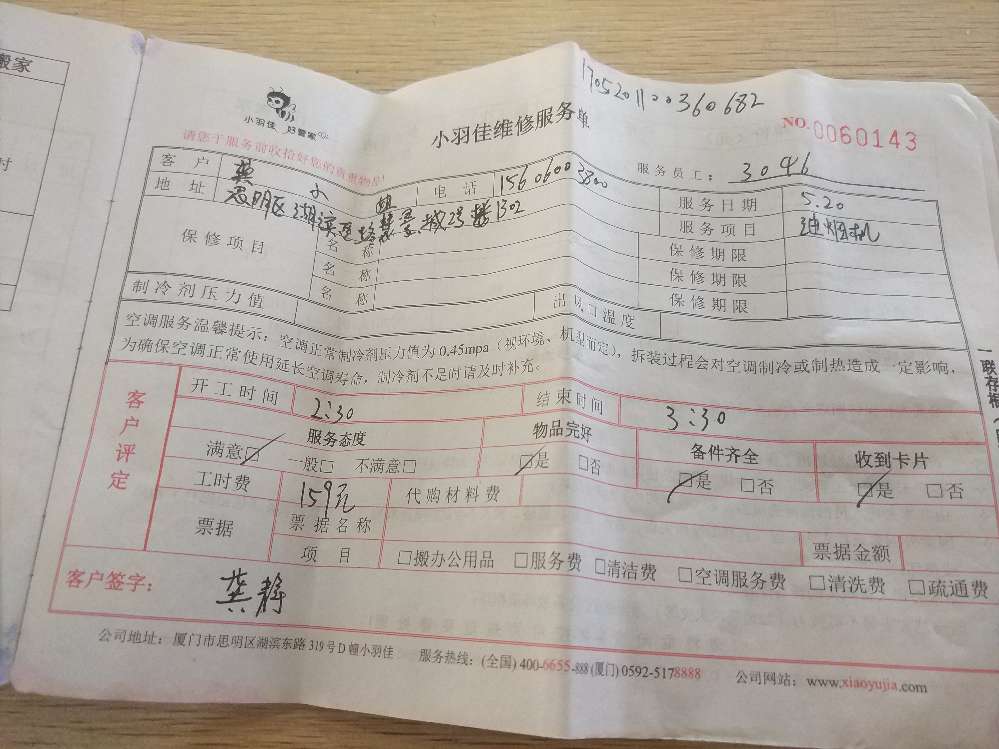 搬家
时
小羽佳 好管家
请您于服务前收拾好您的贵重物品!
小羽佳维修服务单
1705201100360682
NO.0060143
服务员工: 3046
客户 龚 电话 15606003800 服务日期 5.20
地址 思明区湖滨 1302 服务项目 油烟机
保修项目 名称 保修期限
名称 保修期限
名称 保修期限
制冷剂压力值 出风口温度
空调服务温馨提示:空调正常制冷剂压力值为0.45mpa(视环境、机型而定),拆装过程会对空调制冷或制热造成一定影响,
为确保空调正常使用延长空调寿命,制冷剂不足时请及时补充。
一联存根
客户评定
开工时间 2:30 结束时间 3:30
服务态度 物品完好 备件齐全 收到卡片
满意□ 一般□ 不满意□ □是 □否 □是 □否 □是 □否
工时费 159元 代购材料费
票据 票据名称 票据金额
项目 □搬办公用品 □服务费 □清洁费 □空调服务费 □清洗费 □疏通费
客户签字: 龚静
公司地址:厦门市思明区湖滨东路319号D幢小羽佳 服务热线:(全国)400-6655-888(厦门)0592-5178888 公司网站:www.xiaoyujia.com